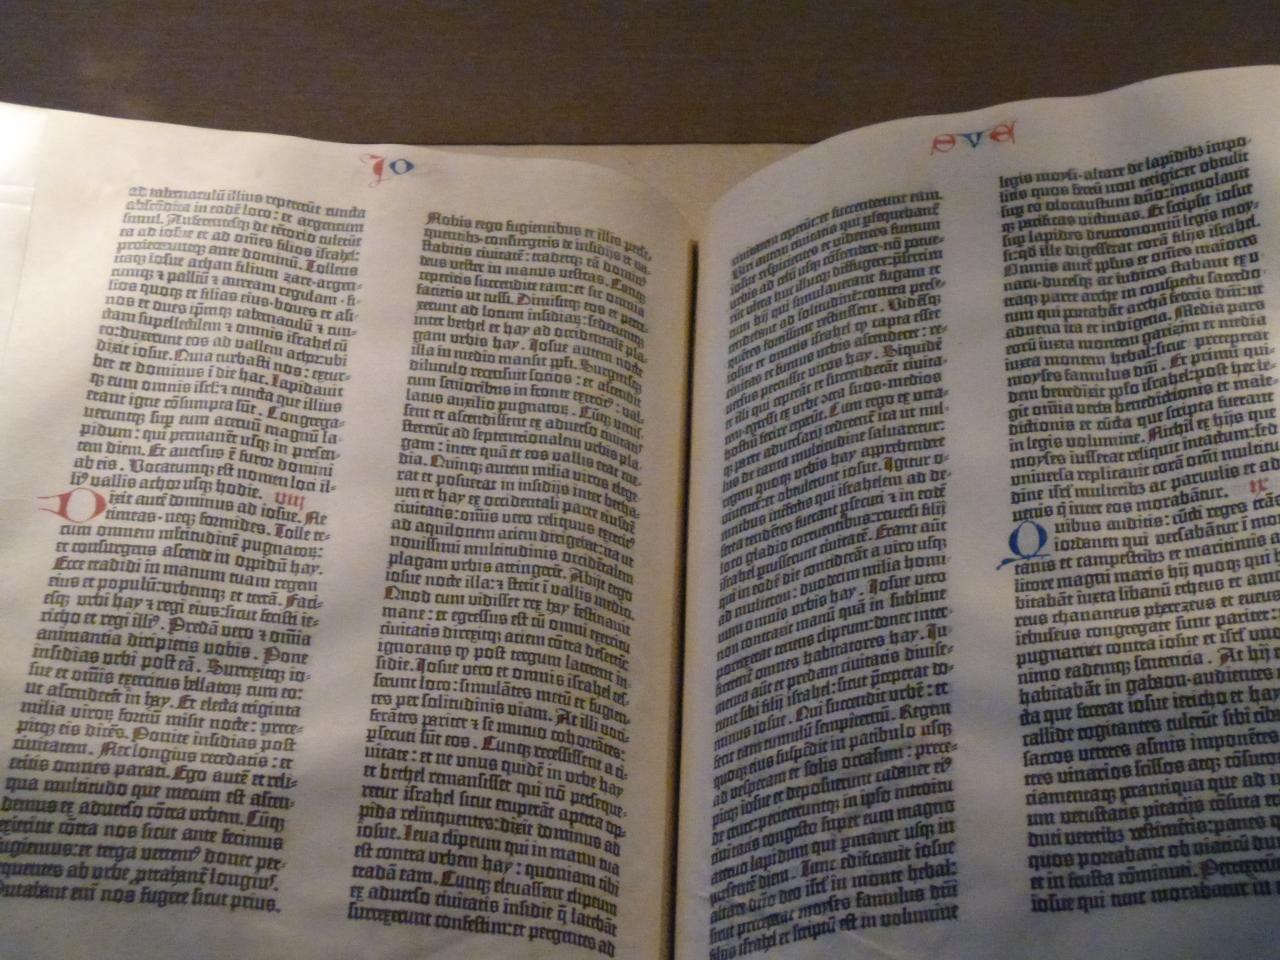 Jo
ad tabernaculū illius reꝑerūt cuncta
abscōdita in eodē loco: et argentum
simul. Auferentesqꝫ de tētorio tulerūt
ea ad iosue et ad om̄es filios israhel:
proieceruntqꝫ ante dominū. Tollens
itaqꝫ iosue achan filium zare·argen-
tumqꝫ ⁊ palliū ⁊ auream regulam·fi-
lios quoqꝫ et filias eius·boues et asi-
nos et oues ip̄mqꝫ tabernaculū ⁊ cun-
ctam supellectilem ⁊ omnis israhel cū
eo:duxerunt eos ad vallem achor:vbi
dixit iosue. Quia turbasti nos: extur-
bet te dominus ī die hac. Lapidauit
qꝫ eum omnis isrl̄: ⁊ cuncta que illius
erant igne cōsumpta sūt. Congrega-
ueruntqꝫ suꝑ eum aceruū magnū la-
pidum: qui permanet vsqꝫ in presen-
tem diem. Et auersus ē furor domini
ab eis. Vocatumqꝫ est nomen loci il-
liꝰ vallis achor vsqꝫ hodie. viij
Dixit autē dominus ad iosue. Ne
timeas·neqꝫ formides. Tolle te-
cum omnem multitudinē pugnatoꝝ:
et consurgens ascende in oppidū hay.
Ecce tradidi in manum tuam regem
eius et populū:vrbemqꝫ et terrā. Faci-
esqꝫ vrbi hay ⁊ regi eius:sicut fecisti ie-
richo et regi illiꝰ. Predā vero ⁊ om̄ia
animantia diripietis vobis. Pone
insidias vrbi post eā. Surrexitqꝫ io-
sue et om̄is exercitus bellatoꝝ cum eo:
ut ascenderēt in hay. Et electa triginta
milia viroꝝ fortiū misit nocte: prece-
pitqꝫ eis dicēs. Ponite insidias post
ciuitatem. Nec longius recedatis: et
eritis omnes parati. Ego autē et reli-
qua multitudo que mecum est accen-
demus ex aduerso cōtra vrbem. Cūqꝫ
exierint cōtra nos sicut ante fecimus
fugiemus:et terga vertemꝰ donec per-
sequentes ab vrbe ꝓtrahant̄ longiuˢ.
Putabunt eni̅ nos fugere sicut prius.
Nobis ergo fugientibus et illis perse-
quentibꝫ·consurgetis de insidijs et va-
stabitis ciuitatē: tradetqꝫ eā dominus
deus vester in manus vestras. Cumqꝫ
ceperitis succendite eam: et sic omnia
facietis ut iussi. Dimisitqꝫ eos et perre-
xerunt ad locum insidiaꝝ: sederuntqꝫ
inter bethel et hay ad occidentalē pla-
gam vrbis hay. Iosue autem nocte
illa in medio mansit ppl̄i. Surgensqꝫ
diluculo recensuit socios: et ascendit
cum senioribus in fronte exercitꝰ: val-
latus auxilio pugnatoꝝ. Cūqꝫ venis-
sent et ascendissent ex aduerso ciuitatis
steterūt ad septentrionalem vrbis pla-
gam: inter quā et eos vallis erat me-
dia. Quinqꝫ autem milia viros elege-
rat et posuerat in insidijs inter bethe-
uen et hay ex occidentali parte eiusdē
ciuitatis: om̄is vero reliquus exercitꝰ
ad aquilonem aciem dirigebat: ita ut
nouissimi multitudinis occidētalem
plagam vrbis attingerēt. Abijt ergo
iosue nocte illa: ⁊ stetit ī vallis medio.
Quod cum vidisset rex hay festinauit
mane: et egressus est cū omni exercitu
ciuitatis direxitqꝫ aciem cōtra desertū:
ignorans qꝫ post tergum laterent in-
sidie. Iosue vero et omnis israhel ces-
serunt loco: simulātes metū et fugien-
tes per solitudinis viam. At illi voci-
ferātes pariter ⁊ se mutuo cohortātes:
ꝑsecuti sūt eos. Cunqꝫ recessissent a ci-
uitate: et ne vnus quidē in vrbe hay
et bethel remansisset qui nō perseque-
retur israhel sicut eruperāt aperta op-
pida relinquentes: dixit dominus ad
iosue. Leua clipeum qui in manu tua
est contra vrbem hay: quoniam tibi
tradā eam. Cunqꝫ eleuasset clipeum
ex aduerso ciuitatis insidie q̄ latebāt
surrexerunt confestim: et pergentes ad
eve
ciuitatem ceperūt: et succenderunt eam.
Viri autem ciuitatis qui ꝑsequebant̄
iosue respicientes et videntes fumum
vrbis ad celū vsqꝫ cōscendere·nō potue-
rūt vltra huc illucqꝫ diffugere: presertim
cum hij qui simulauerant fugam et
tendebant ad solitudinē: contra perse-
quētes fortissime restitissent. Vidēsqꝫ
iosue et omnis israhel qꝫ capta esset
ciuitas et fumus vrbis ascenderet: re-
uersus percussit viros hay. Siquidē
et illi qui ceperāt et succenderāt ciuita-
tem·egressi ex vrbe ɔtra suos·medios
hostiū ferire ceperūt. Cum ergo ex vtra-
qꝫ parte aduersarij cederent̄ ita ut nul-
lus de tanta multitudine saluaretur:
regem quoqꝫ vrbis hay apprehendere
viuentē: et obtulerunt iosue. Igitur o-
mnibus interfectis qui israhelem ad de-
serta tendētes fuerant ꝑsecuti ⁊ in eodē
loco gladio corruentibus: reuersi filij
israhel percusserunt ciuitatē. Erant aūt
qui in eodē die conciderant a viro vsqꝫ
ad mulierem: duodecim milia homi-
num om̄es vrbis hay. Iosue vero
non contraxit manū quā in sublime
porrexerat tenens clipeum: donec inter-
ficerent̄ omnes habitatores hay. Iu-
menta aūt et predam ciuitatis diuise-
runt sibi filij israhel: sicut p̄ceperat do-
minus iosue. Qui succendit vrbē: et
fecit eam tumulū sempiternū. Regem
quoqꝫ eius suspēdit in patibulo vsqꝫ
ad vesperam et solis occasum: prece-
pitqꝫ iosue et deposuerunt cadauer eiꝰ
de cruce: proieceruntqꝫ in ipso introitu
ciuitatis congesto super eum magno
aceruo lapidum qui ꝑmanet vsqꝫ in
presentē diem. Tunc edificauit iosue
altare dn̄o deo isrl̄ in monte hebal:
sicut preceperat moyses famulus dn̄i
filijs israhel et scriptū est in volumine
legis moysi·altare de lapidibꝫ impo-
litis quos ferrū non tetigit: et obtulit
suꝑ eo olocaustum dn̄o: immolauit
qꝫ pacificas victimas. Et scripsit iosue
suꝑ lapides deuteronomiū legis moy-
si: qd̄ ille digesserat corā filijs israhel.
Omnis autē ppl̄us et om̄es maiores
natu·ducesqꝫ ac iudices stabant ex v-
traqꝫ parte arche in conspectu sacerdo-
tum qui portabāt archā federis dn̄i: ut
aduena ita et indigena. Media pars
eorū iuxta montem garizim et media
iuxta montem hebal: sicut preceperat
moyses famulus dn̄i. Et primū qui-
dem benedixit ppl̄o israhel: post hec le-
git om̄ia verba benedictionis et male-
dictionis et cūcta que scripta fuerant
in legis volumine. Nichil ex hijs que
moyses iusserat reliquit intactum: sed
vniuersa replicauit corā omni multitu-
dine isrl̄ mulieribꝫ ac paruulis et ad-
uenis q̄ inter eos morabātur. ix
Quibus auditis: cūcti reges trās
iordanem qui versabātur ī mon-
tanis et campestribꝫ et maritimis ac
litore magni maris hij quoqꝫ qui
habitabāt iuxta libanū etheus et amor-
reus chananeus pherezeus et eueus
iebuseus congregati sunt pariter:
pugnarent contra iosue et isrl̄ vno
nimo eademqꝫ sententia. At hij
habitabāt in gabaon·audientes
cta que fecerat iosue iericho et hay
callide cogitantes tulerūt sibi cibaria
saccos veteres asinis imponētes
tres vinarios scissos atqꝫ cōsutos
ciamentaqꝫ pantiqua que ad in-
um vetustatis pitacijs cōsuta erant
duti veteribꝫ vestimētis: panes
quos portabant ob viaticū duri
et in frusta cōminuti. Perrexerūtqꝫ
iosue qui tunc morabatur in